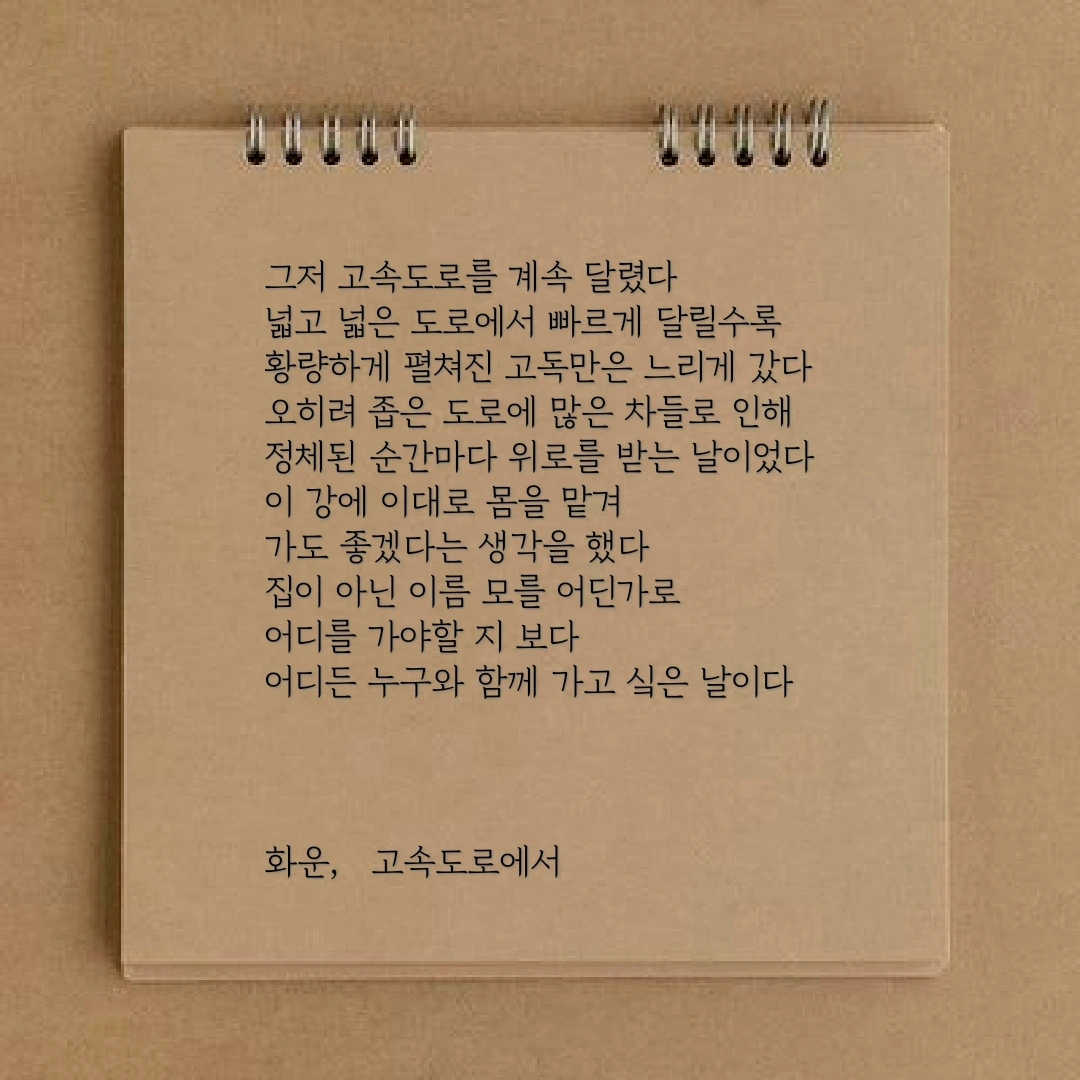 그저 고속도로를 계속 달렸다
넓고 넓은 도로에서 빠르게 달릴수록
황량하게 펼쳐진 고독만은 느리게 갔다
오히려 좁은 도로에 많은 차들로 인해
정체된 순간마다 위로를 받는 날이었다
이 강에 이대로 몸을 맡겨
가도 좋겠다는 생각을 했다
집이 아닌 이름 모를 어딘가로
어디를 가야할 지 보다
어디든 누구와 함께 가고 싶은 날이다
화운, 고속도로에서